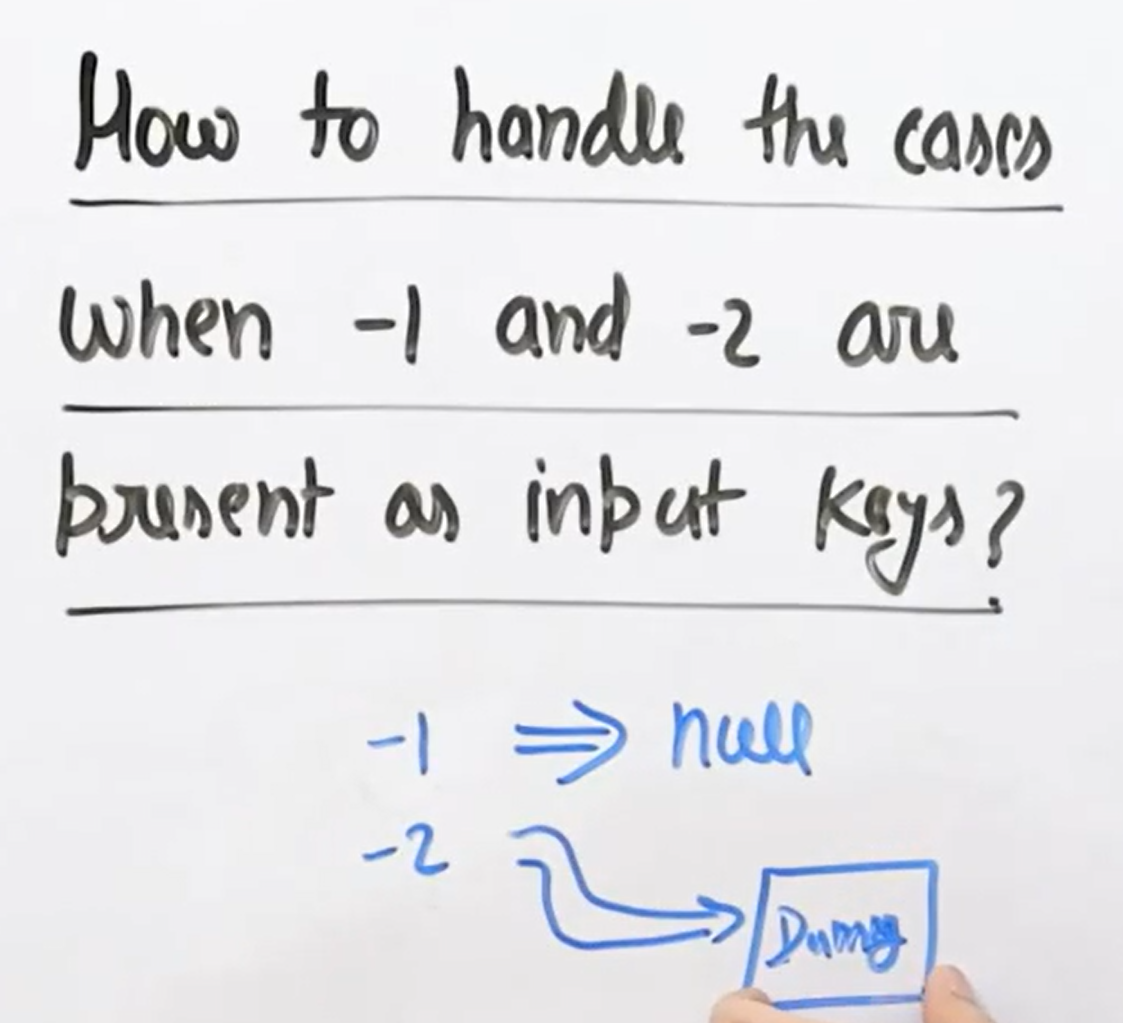 How to handle the cases
when -1 and -2 are
present as input keys?
-1 ⇒ null
-2
Dummy